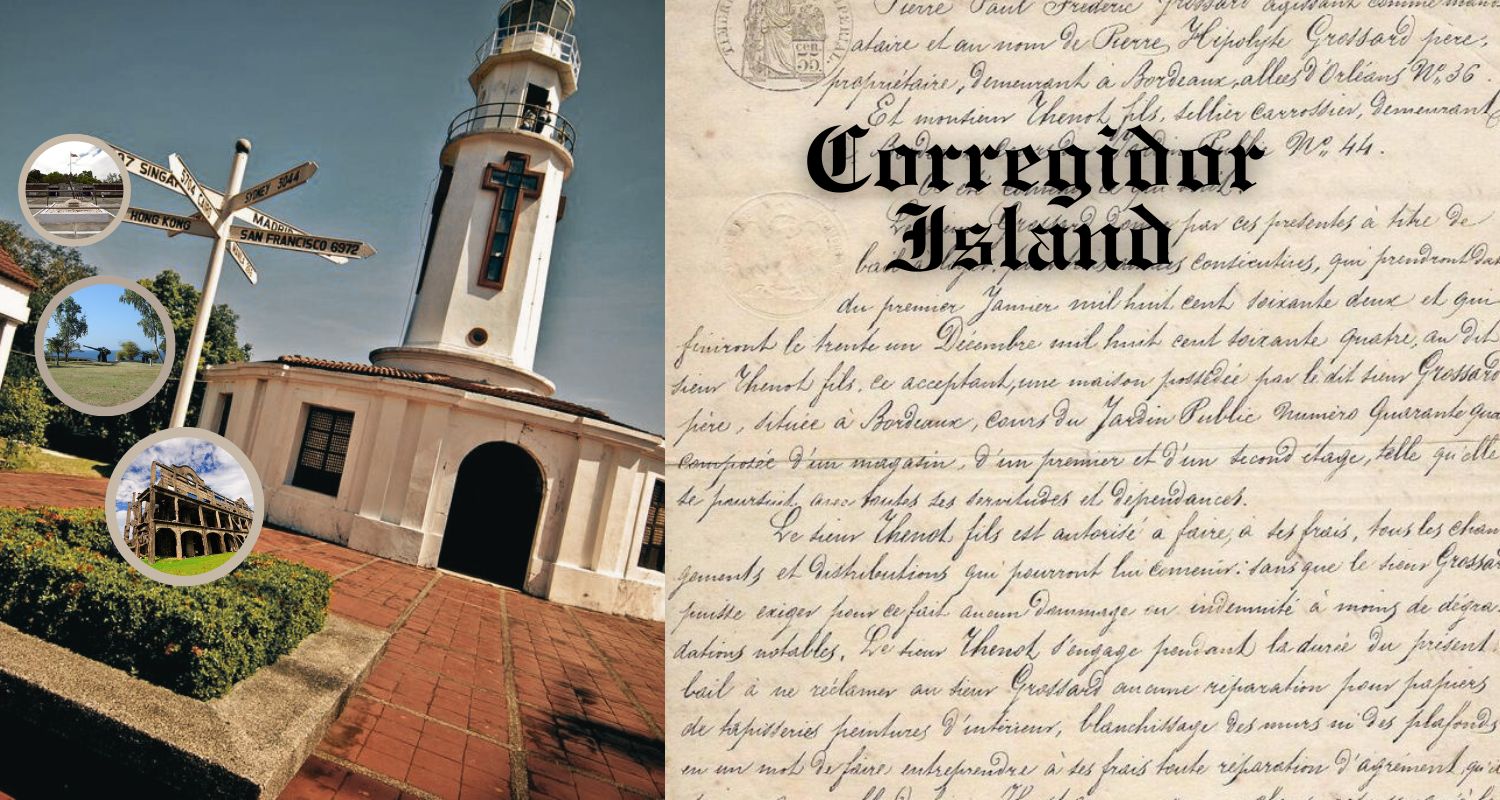 SINGA
5704 CAIRO
SYDNEY 3044
HONG KONG
MADRID
SAN FRANCISCO 6972
Corregidor
Island
TIMBRE IMPERIAL
cen.
55
Pierre Paul Fréderic Grossard agissant comme mand
ataire et au nom de Pierre Hipolyte Grossard père,
propriétaire, demeurant à Bordeaux, allées d'Orléans N° 36.
Et monsieur Thenot fils, sellier carrossier, demeurant
Jardin Public N° 44.
Le sieur Grossard donne par ces présentes à titre de
bail consécutives, qui prendront dat
du premier Janvier mil huit cent soixante deux et qui
finiront le trente un Décembre mil huit cent soixante quatre, au dit
sieur Thenot fils, ce acceptant, une maison possédée par le dit sieur Grossard
père, située à Bordeaux, cours du Jardin Public numéro Quarante qua
composée d'un magasin, d'un premier et d'un second étage, telle qu'elle
se poursuit, avec toutes ses servitudes et dépendances.
Le sieur Thenot fils est autorisé à faire, à ses frais, tous les chan
gements et distributions qui pourront lui convenir: sans que le sieur Grossar
puisse exiger pour ce fait aucun dommage ou indemnité à moins de dégra
dations notables. Le sieur Thenot s'engage pendant la durée du présent
bail à ne réclamer au sieur Grossard aucune réparation pour papiers
de tapisseries peintures d'intérieur, blanchissage des murs ni des plafonds
en un mot de faire entreprendre à ses frais toute réparation d'agrément, qu'il